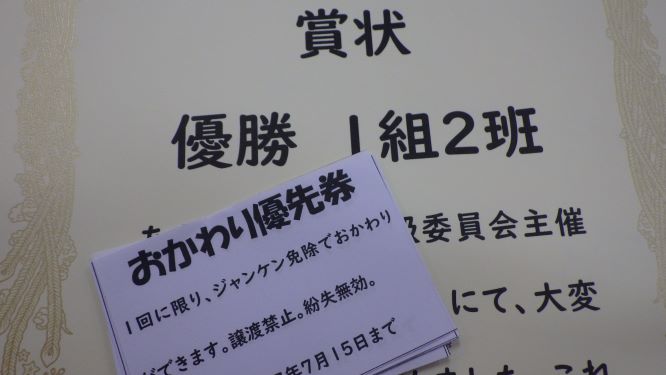 賞状
優勝 1組2班
委員会主催
にて、大変
これ
おかわり優先券
1回に限り、ジャンケン免除でおかわり
ができます。譲渡禁止。紛失無効。
年7月15日まで